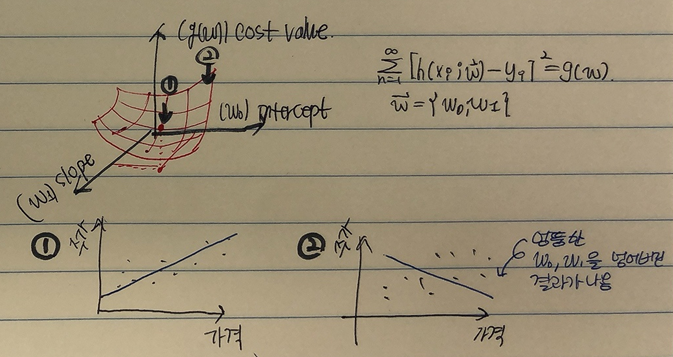 (g(w)) cost value.
②
①
(w₀) intercept
(w₁) slope
∞
∑ [h(xᵢ; w⃗) - yᵢ]² = g(w).
n=1
w⃗ = {w₀, w₁}
①
크기
가격
②
크기
가격
엉뚱한
w₀, w₁을 넣어버린
결과가 나옴